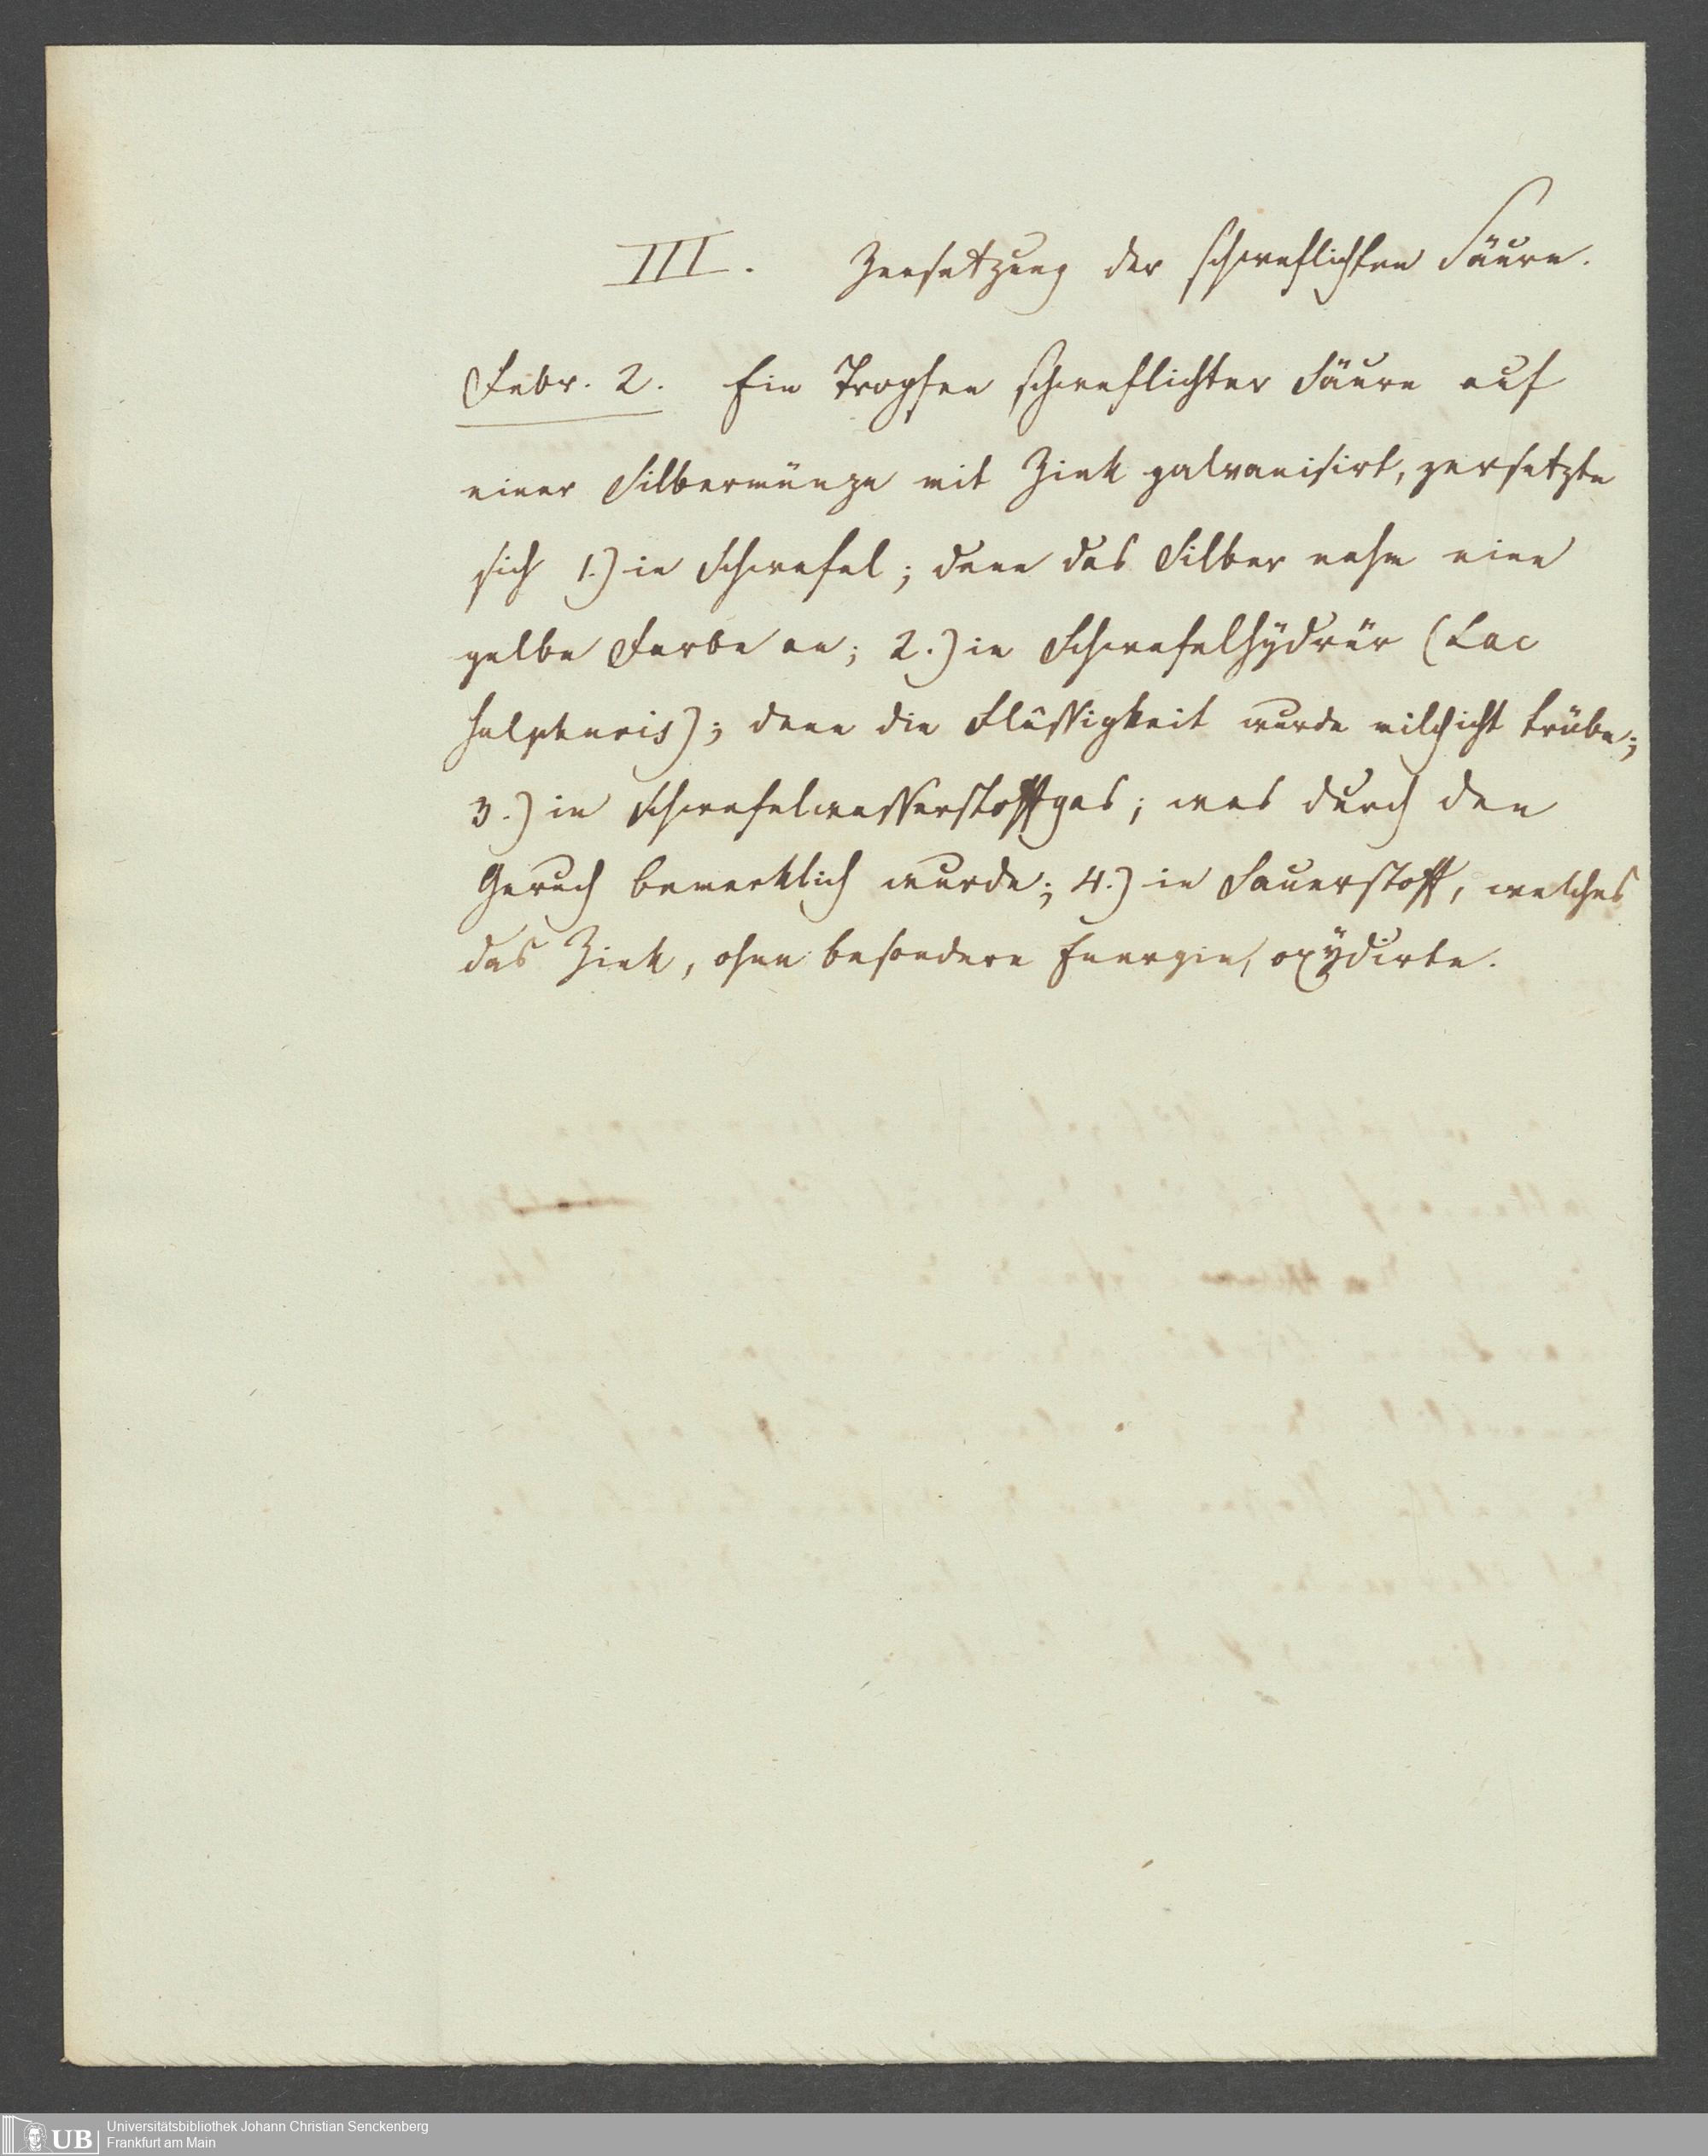 III. Zersetzung der schweflichten Säure.
Febr. 2. Ein Tropfen schweflichter Säure auf
einer Silbermünze mit Zink galvanisirt, zersetzte
sich 1.) in Schwefel; denn das Silber nahm eine
gelbe Farbe an; 2.) in Schwefelhydrür (Lac
sulphuris); denn die Flüssigkeit wurde milchicht trübe;
3.) in Schwefelwasserstoffgas; was durch den
Geruch bemerklich wurde; 4.) in Sauerstoff, welches
das Zink, ohne besondere Energie, oxydirte.
UB
Universitätsbibliothek Johann Christian Senckenberg
Frankfurt am Main